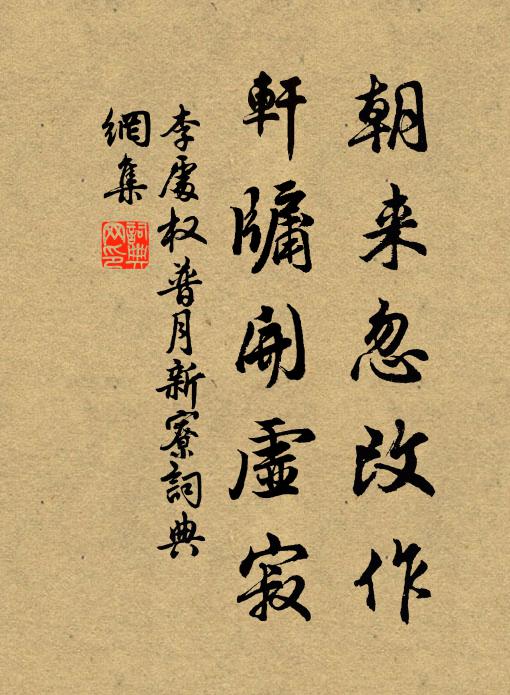 朝来忽改作
軒牖開虛寂
李處权普月新寮詞典
網集
詞典網印